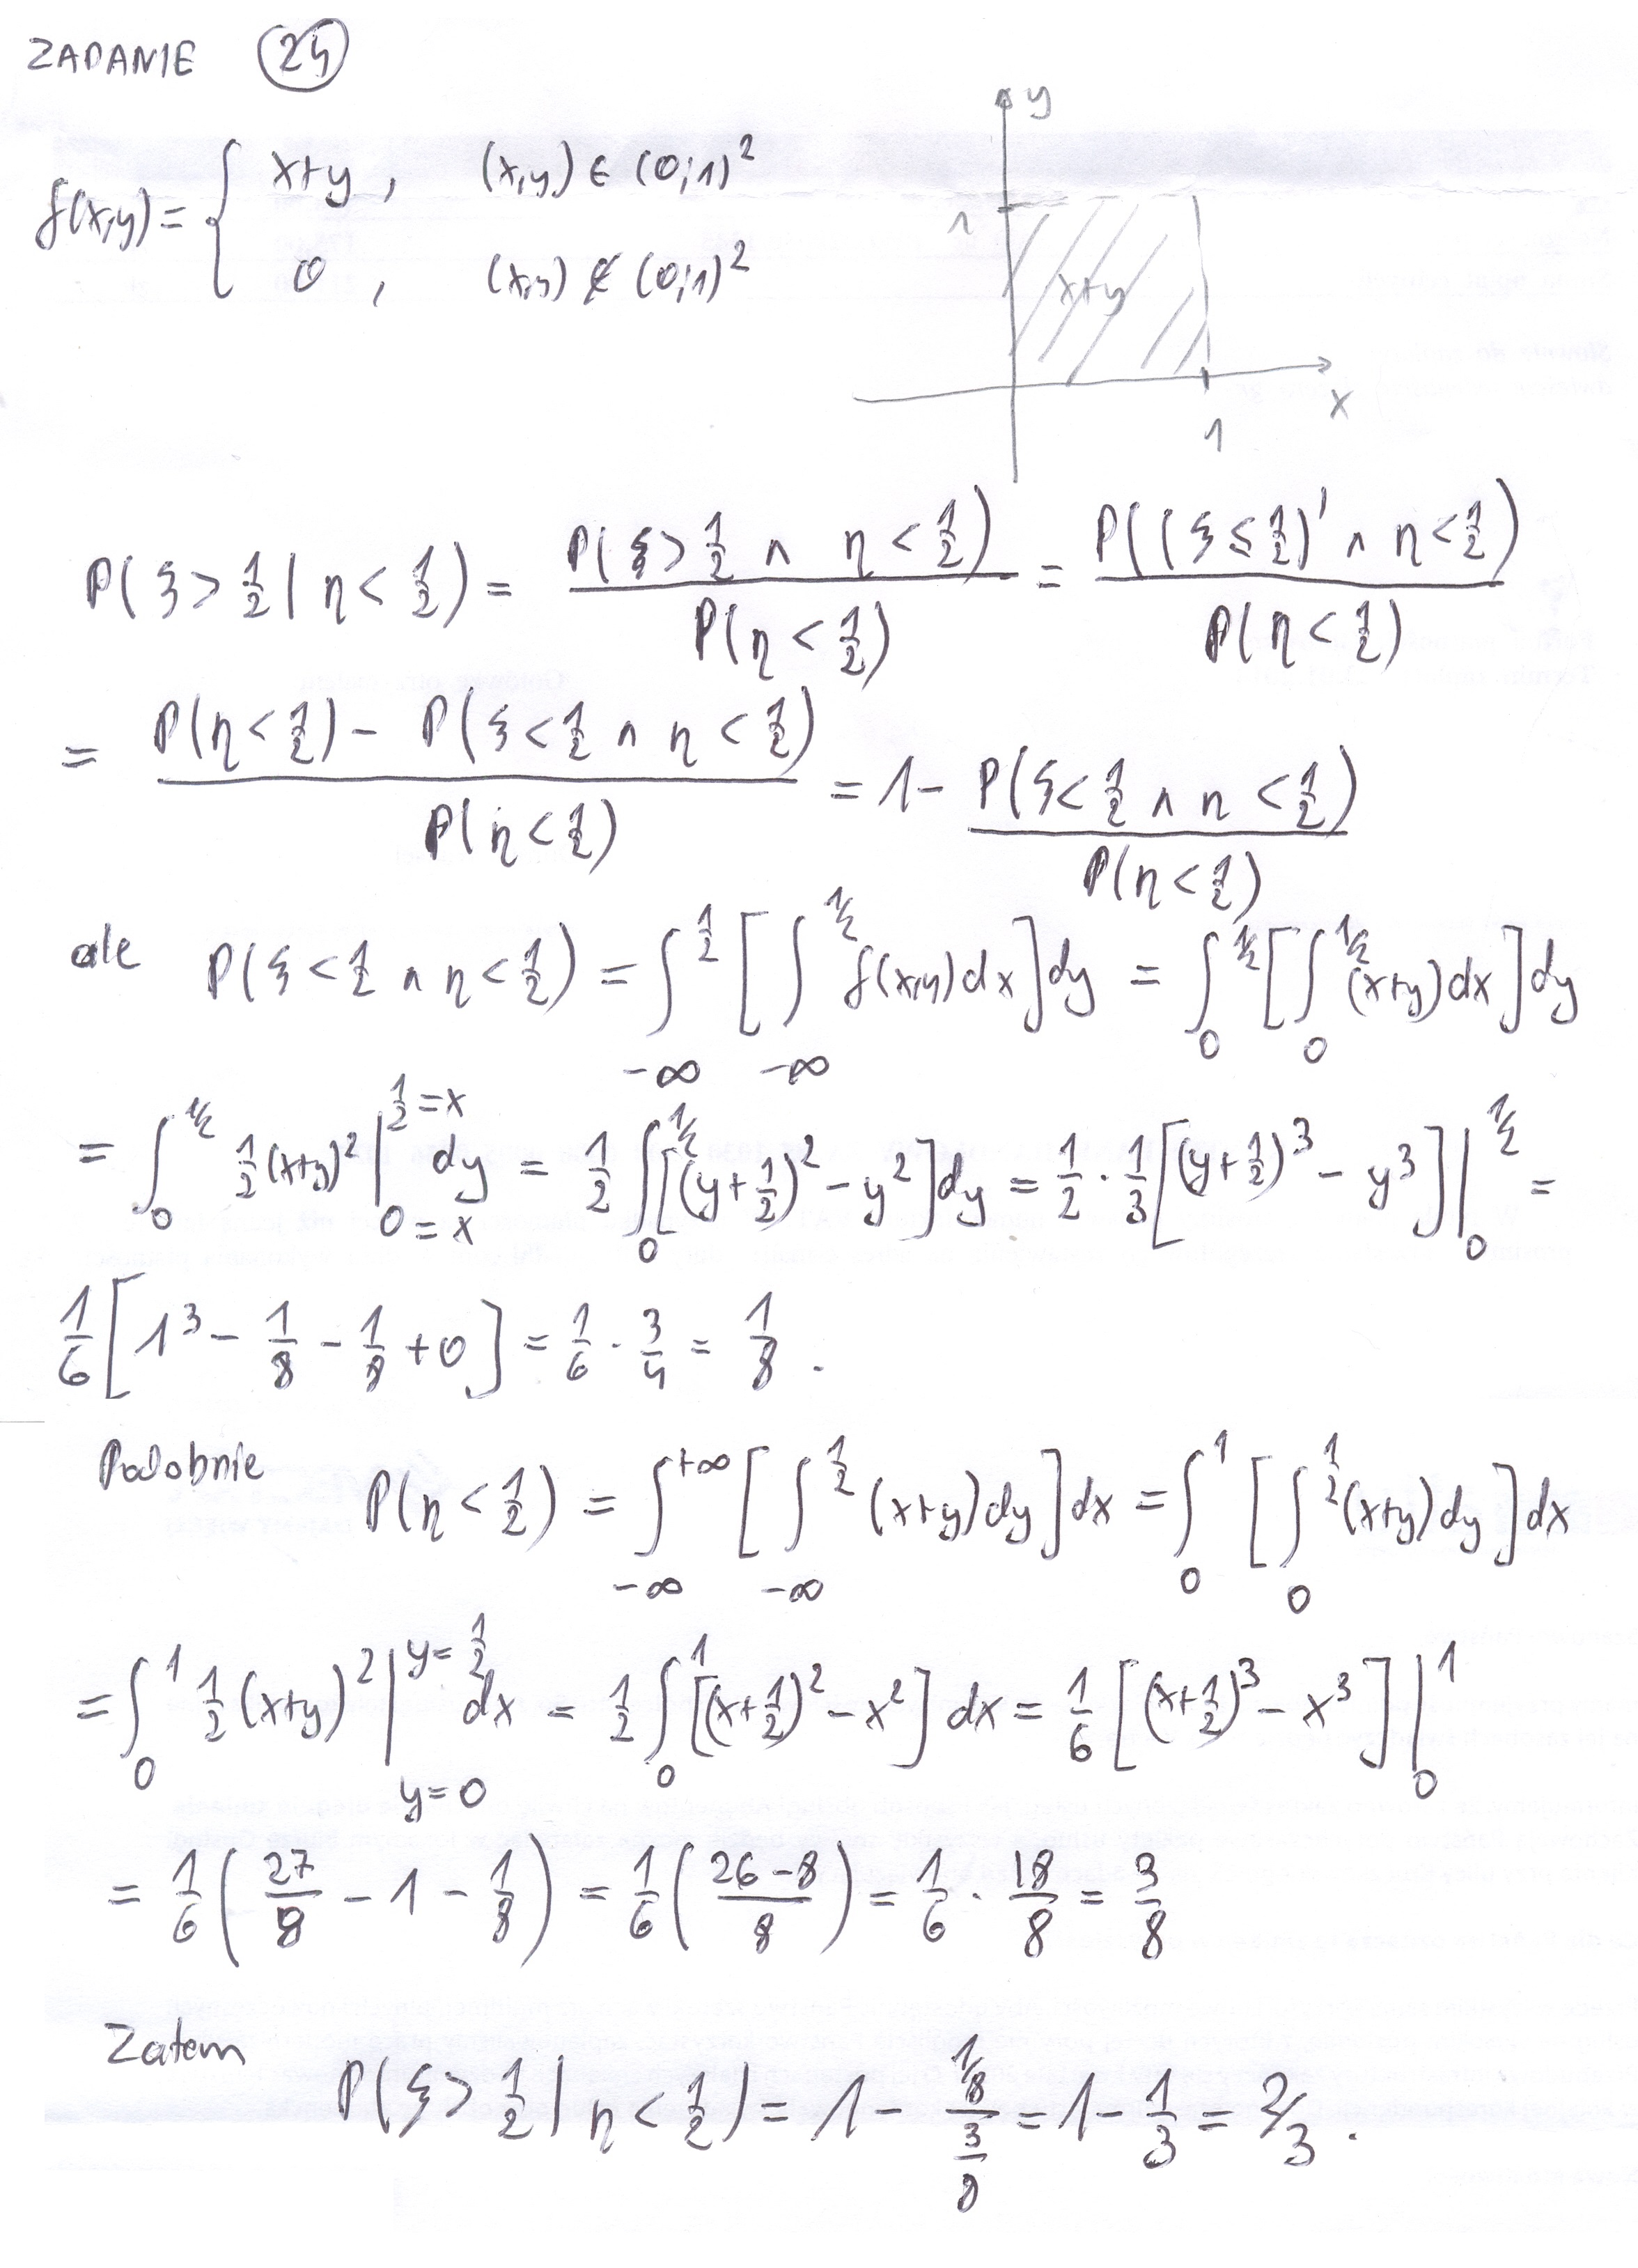 ZADANIE 24
f(x,y) = { x+y , (x,y) ∈ (0;1)²
0 , (x,y) ∉ (0;1)²
y
1
x+y
x
1
P(ξ > 1/2 | η < 1/2) = P(ξ > 1/2 ∧ η < 1/2) / P(η < 1/2) = P((ξ ≤ 1/2)' ∧ η < 1/2) / P(η < 1/2)
= [P(η < 1/2) - P(ξ < 1/2 ∧ η < 1/2)] / P(η < 1/2) = 1 - P(ξ < 1/2 ∧ η < 1/2) / P(η < 1/2)
ale P(ξ < 1/2 ∧ η < 1/2) = ∫_{-∞}^{1/2} [ ∫_{-∞}^{1/2} f(x,y) dx ] dy = ∫_0^{1/2} [ ∫_0^{1/2} (x+y) dx ] dy
= ∫_0^{1/2} 1/2 (x+y)² |_{0=x}^{1/2=x} dy = 1/2 ∫_0^{1/2} [(y+1/2)² - y²] dy = 1/2 · 1/3 [(y+1/2)³ - y³] |_0^{1/2} =
1/6 [1³ - 1/8 - 1/8 + 0] = 1/6 · 3/4 = 1/8 .
Podobnie
P(η < 1/2) = ∫_{-∞}^{+∞} [ ∫_{-∞}^{1/2} (x+y) dy ] dx = ∫_0^1 [ ∫_0^{1/2} (x+y) dy ] dx
= ∫_0^1 1/2 (x+y)² |_{y=0}^{y=1/2} dx = 1/2 ∫_0^1 [(x+1/2)² - x²] dx = 1/6 [(x+1/2)³ - x³] |_0^1
= 1/6 (27/8 - 1 - 1/8) = 1/6 ((26-8)/8) = 1/6 · 18/8 = 3/8
Zatem
P(ξ > 1/2 | η < 1/2) = 1 - (1/8)/(3/8) = 1 - 1/3 = 2/3 .